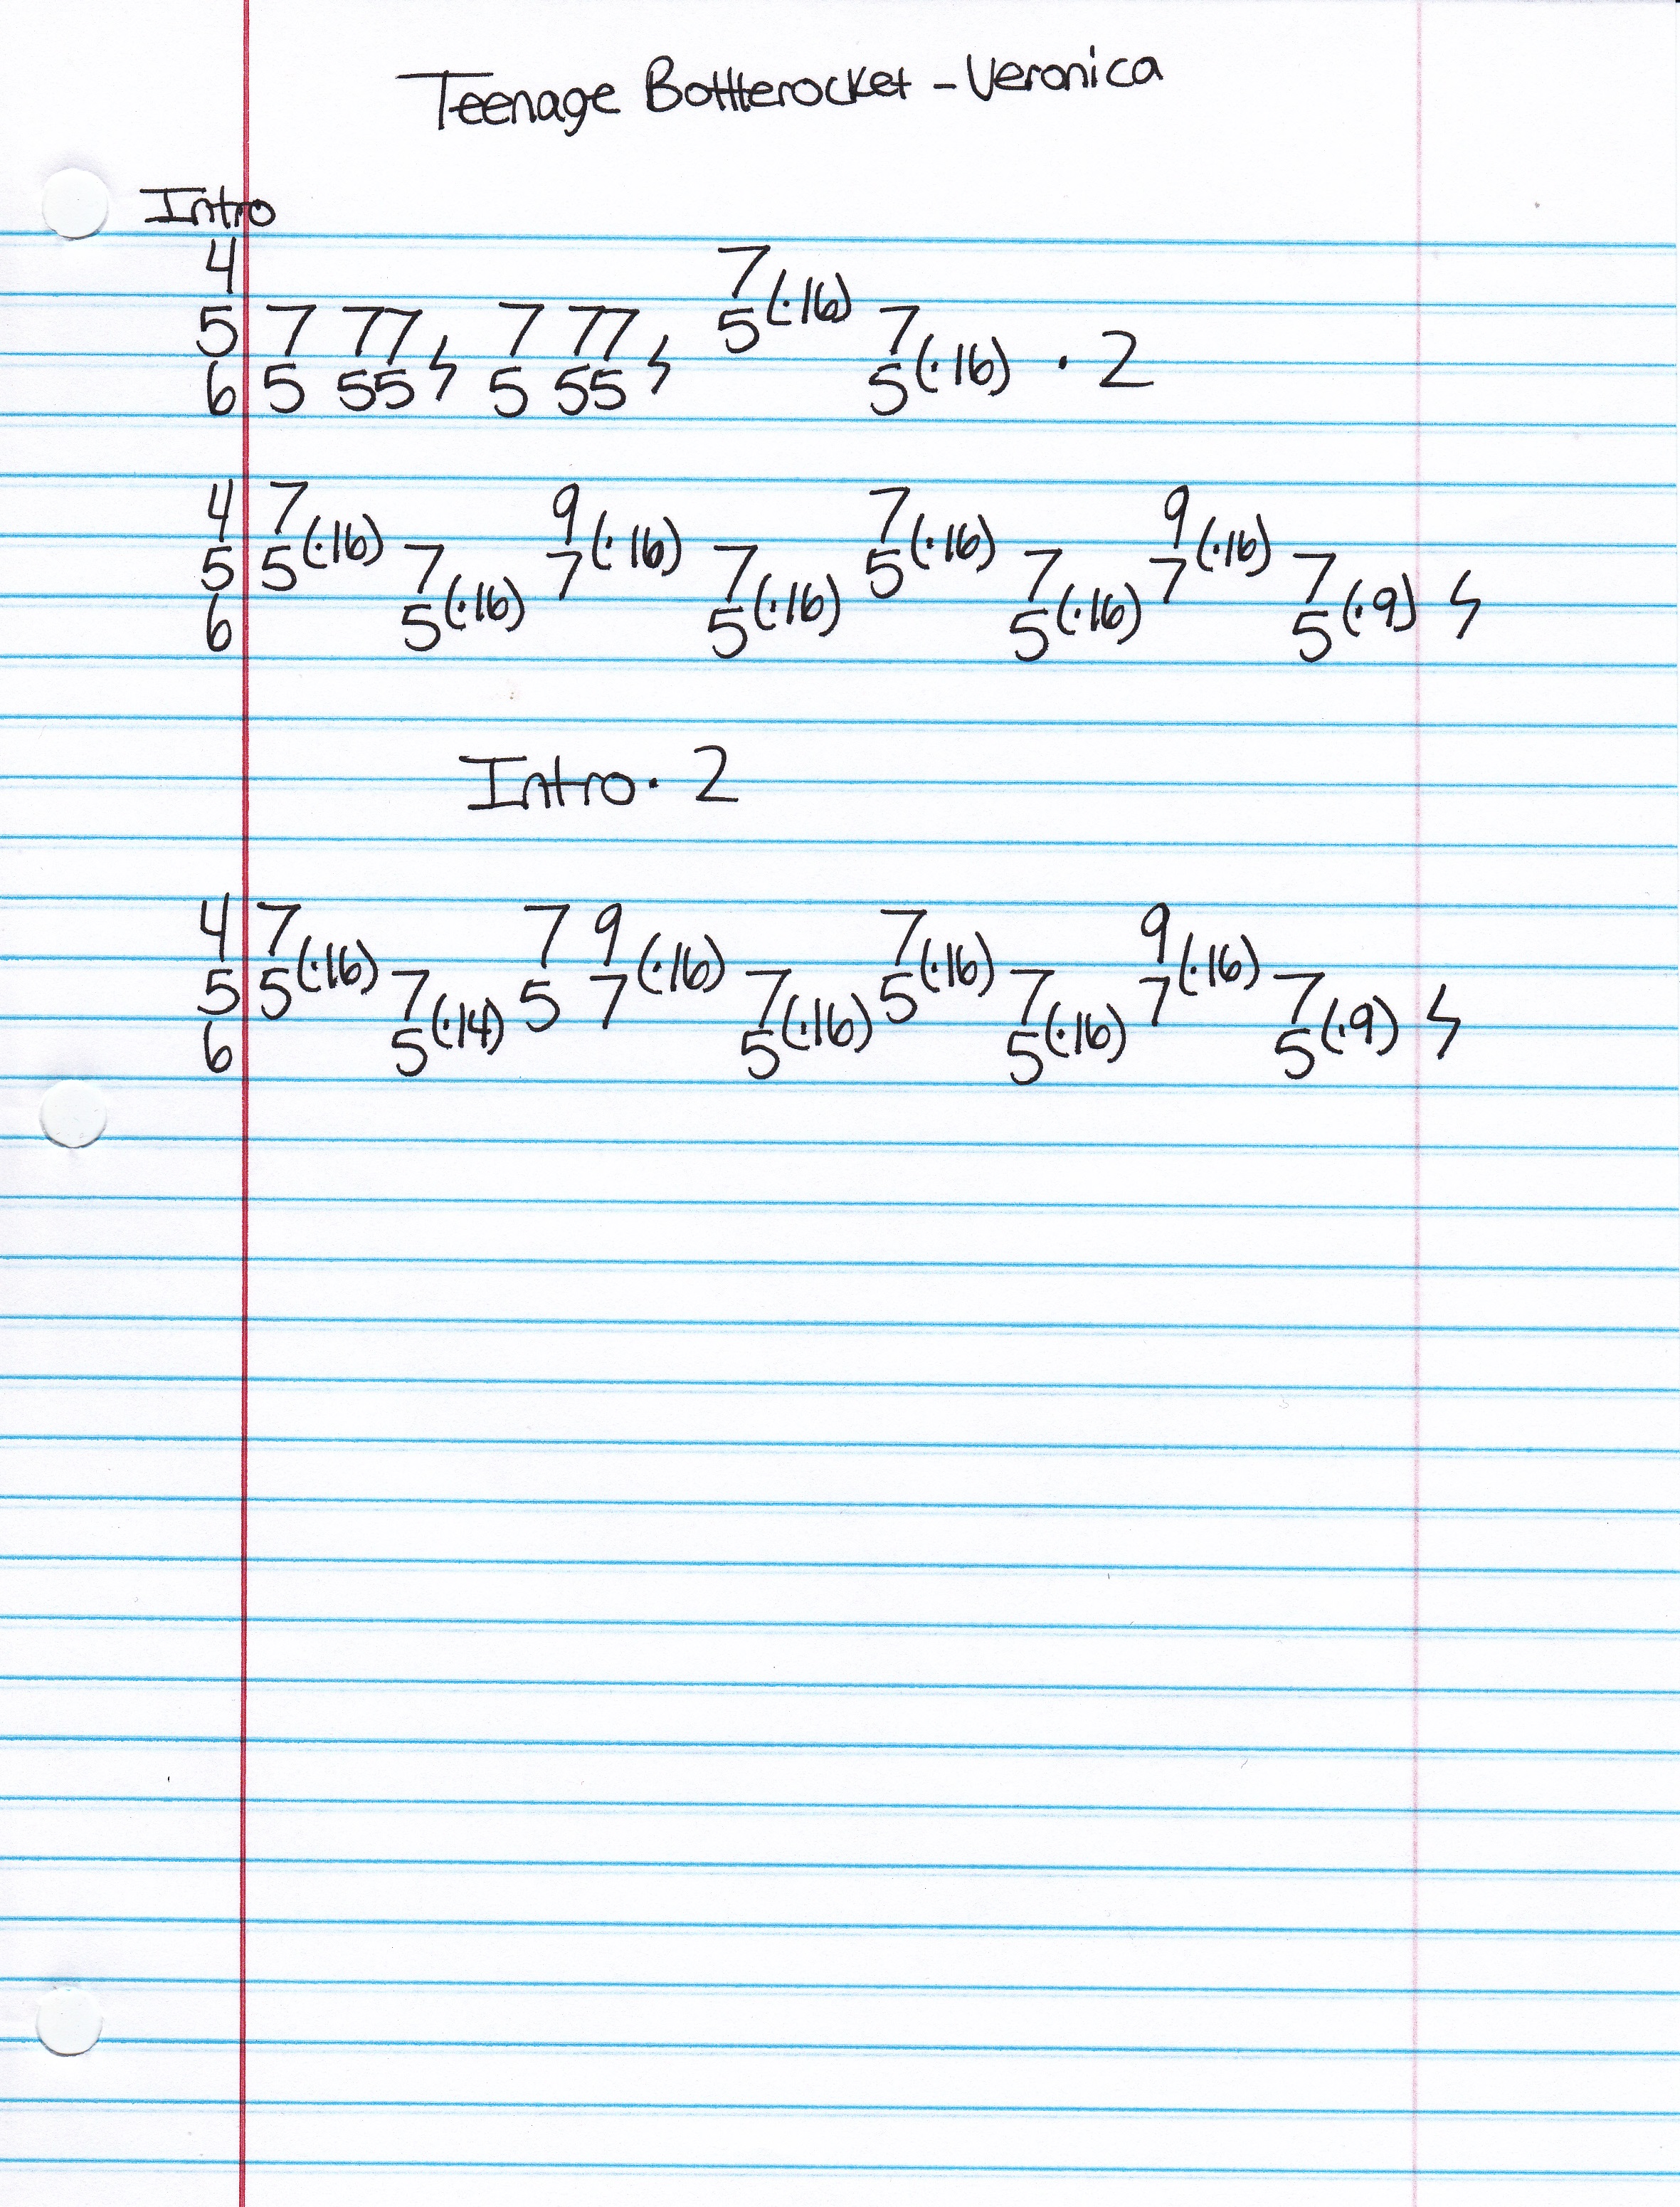 Teenage Bottlerocket - Veronica
Intro
4 7(·16)
5 7 77 ϟ 7 77 ϟ 5 7(·16) · 2
6 5 55 5 55 5
4 7(·16) 9(·16) 7(·16) 9(·16)
5 5 7 7 7 5 7 7 7 ϟ
6 5(·16) 5(·16) 5(·16) 5(·9)
Intro · 2
4 7(·16) 7 9(·16) 7(·16) 9(·16)
5 5 7 5 7 7 5 7 7 7 ϟ
6 5(·14) 5(·16) 5(·16) 5(·9)